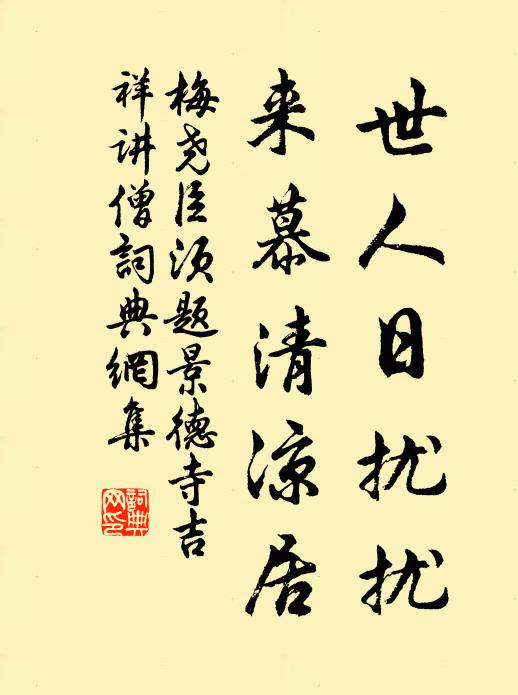 世人日扰扰
来慕清凉居
梅尧臣须题景德寺吉
祥讲僧詞典網集
詞典网印